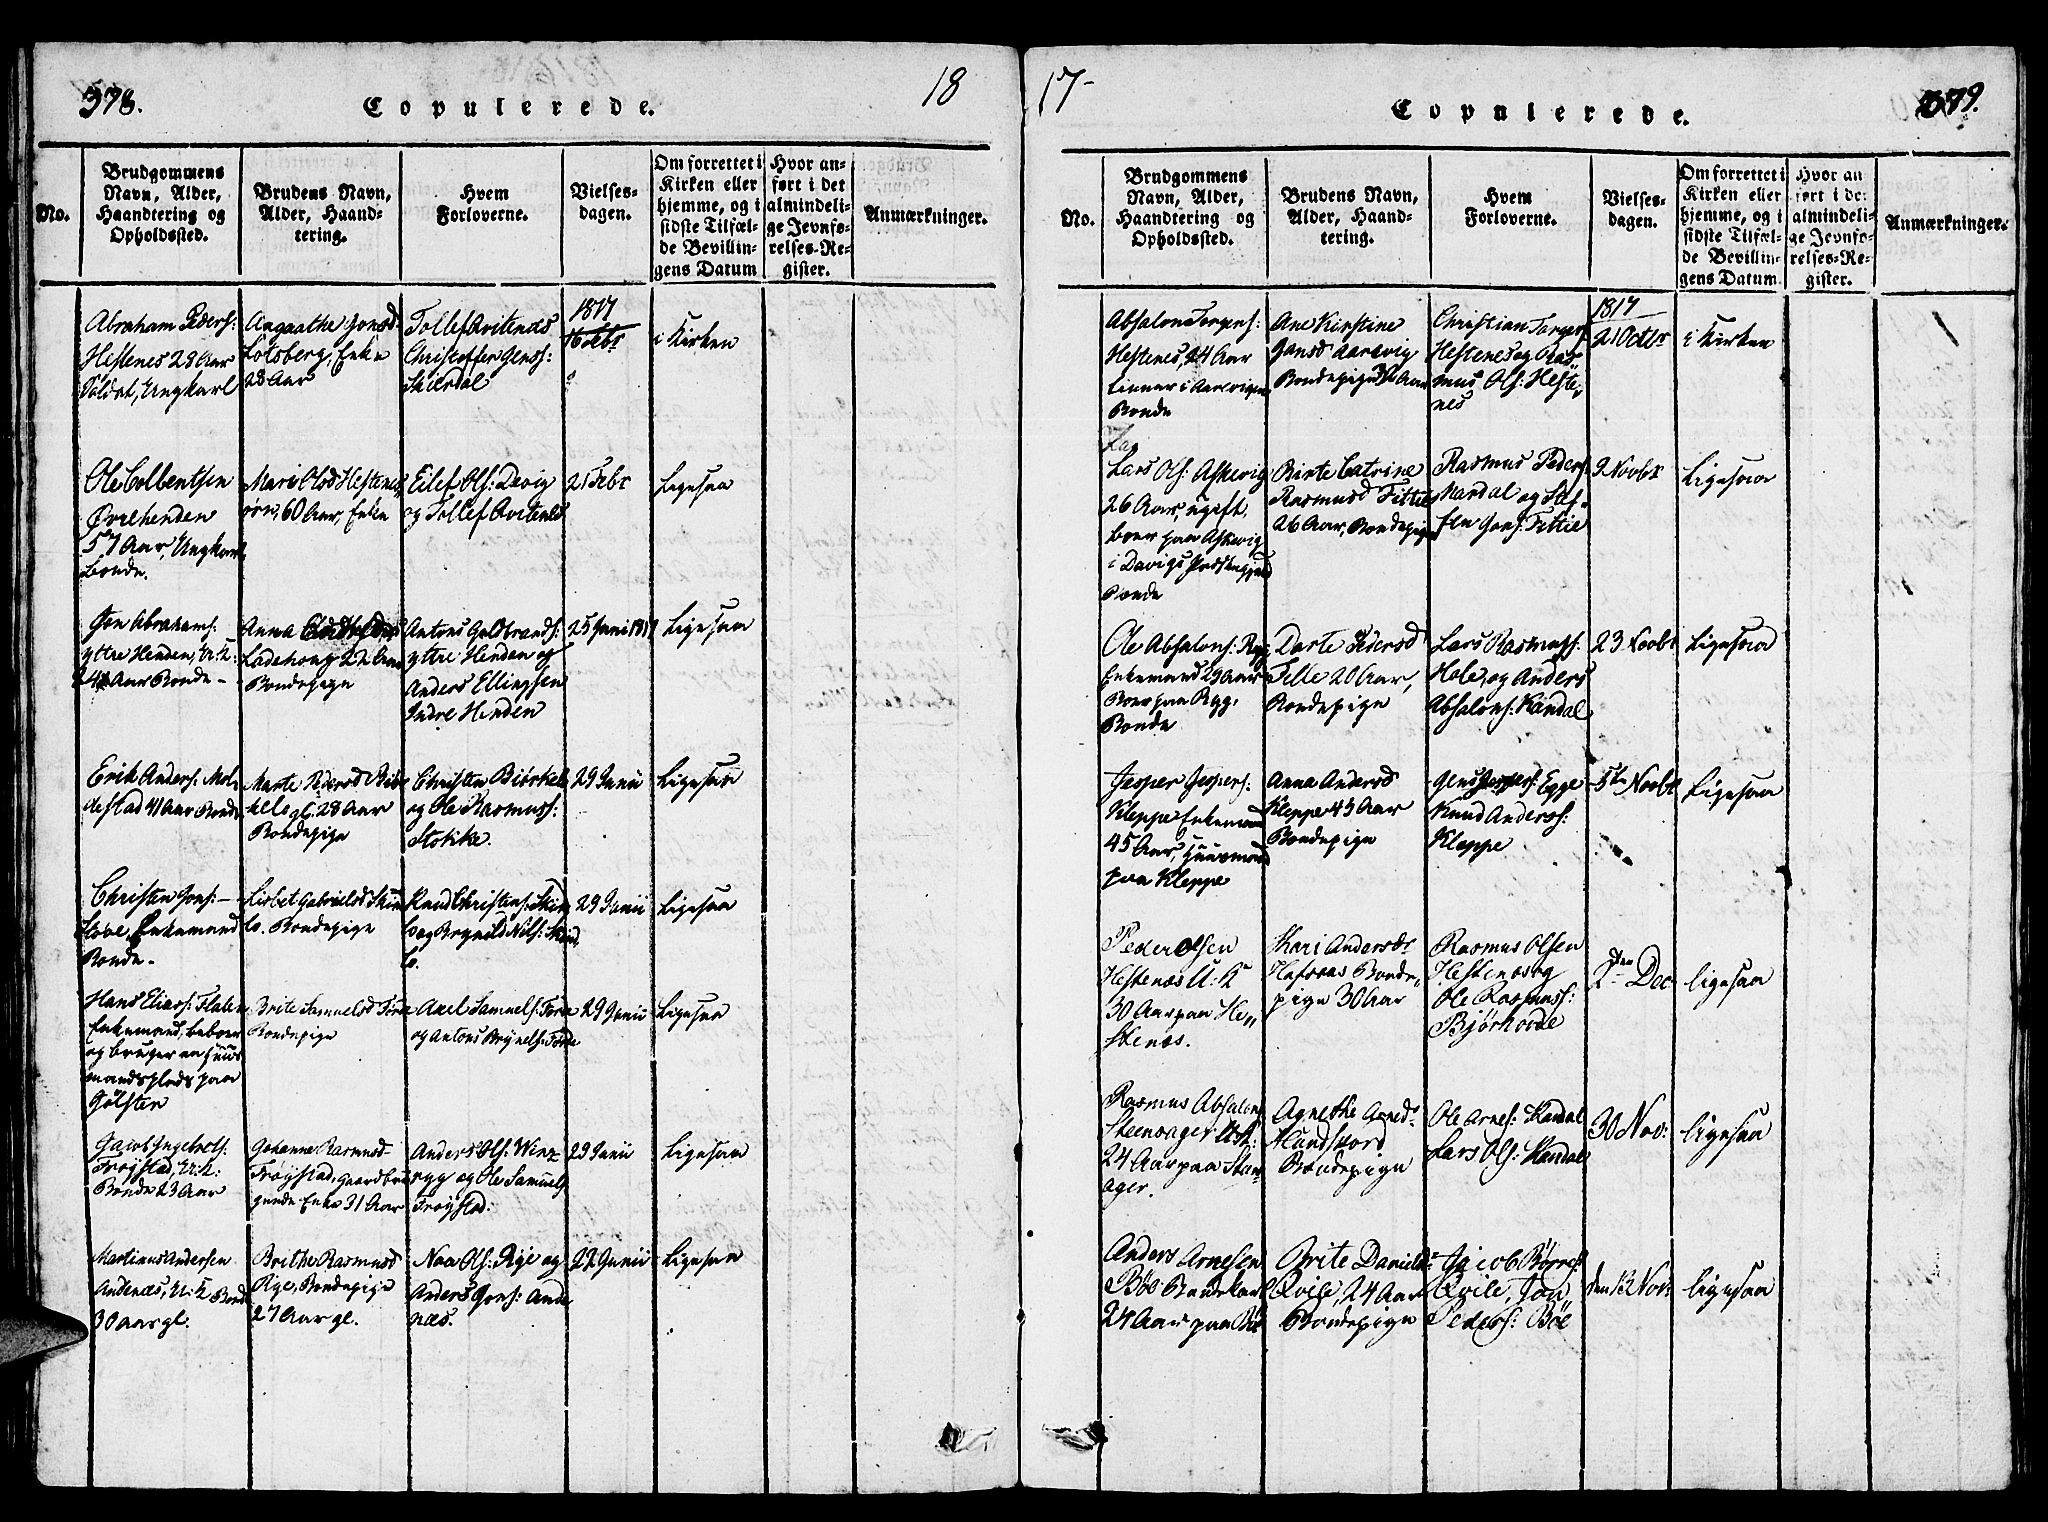 378.
Copulerede.
18
No.
Brudgommens
Navn, Alder,
Haandtering og
Opholdssted.
Brudens Navn,
Alder, Haand-
tering.
Hvem
Forloverne.
Vielses-
dagen.
Om forrettet i
Kirken eller
hjemme, og i
sidste Tilfæl-
de Bevillin-
gens Datum
Hvor an-
ført i det
almindeli-
ge Jevnfø-
relses-Re-
gister.
Anmærkninger.
Abraham Peders:
Hestenes 28 Aar
Soldat, Ungkarl
Angaathe Jonsd
Lotsberg, Enke
28 Aar
Tollef Qvitenes
Christoffer Jenss:
Skierdal
1817
16 Febr
i Kirken
Ole Colbentsen
Øvrehenden
57 Aar, Ungkarl
Bonde.
Mari Olsd Hestenes
ørn, 60 Aar, Enke
Eilef Ols: Devig
og Tollef Qvitenes
21 Febr
Ligesaa
Jon Abrahams:
yttre Henden, U:K:
24 Aar Bonde -
Anna
Ladehoug 22 Aar
Bondepige
Antons Guldbrands:
yttre Henden og
Anders Ellingsen
Indre Henden
25 Juni 1817
Ligesaa
Erik Anders: Mol-
destad 41 Aar Bonde
Marte Pedersd Biør
kelo gl. 28 Aar
Bondepige
Christen Biørkelo
og Ole Rasmuss:
Stokke.
29 Junii
Ligesaa
Christen Jons: -
Stove, Enkemand
Bonde -
Lisbet Gabrielsd Skin
lo. Bondepige
Knud Christens: Skin
lo og Brynild Nils: Skin
lo.
29 Junii
Ligesaa
Hans Eliass: Flaten
Enkemand, beboer
og bruger en Huus
mandsplads paa
Gjølsten
Brite Samuelsd Førde
Bondepige
Axel Samuels: Førde
og Antons Brynels: Førde
29 Junii
Ligesaa
Jacob Ingebrets:
Frøystad, U:K:
Bonde 23 Aar
Johanne Rasmusd
Frøystad, gaardbru
gende Enke 31 Aar
Anders Ols: Winz
ryg og Ole Samuels
Frøystad:
29 Junii
Ligesaa
Martinus Andersen
Andenæs, U:K Bonde
30 Aar gl.
Brithe Rasmusd
Rye, Bondepige
27 Aar gl.
Noe Ols: Rye og
Anders Jons: Ande
næs.
22 Junii
Ligesaa
17-
Copulerede.
379.
No.
Brudgommens
Navn, Alder,
Haandtering og
Opholdssted.
Brudens Navn,
Alder, Haand-
tering.
Hvem
Forloverne.
Vielses-
dagen.
Om forrettet i
Kirken eller
hjemme, og i
sidste Tilfæl-
de Bevillin-
gens Datum
Hvor an
ført i de
almindeli-
ge Jevnfø-
relses-Re-
gister.
Anmærkninger.
Absalon Torgens:
Hestenes, 24 Aar
Linner i Aarevigen
Bonde
Ane Kirstine
Jonsd Aarevig
Bondepige 32 Aar
Christian Torgers
Hestenes og Ras-
mus Ols: Heste,
nes
1817
21 Octbr
i Kirken
Lars Ols: Askevig
26 Aar, ugift,
boer paa Askevig
i Davigs Præstegjeld
Bonde
Birte Catrine
Rasmusd Fittie
26 Aar, Bondepige
Rasmus Peders
Mardal og Stef-
fen Jons: Fittie
9 Novbr
Ligesaa
Ole Absalons: Ryg
Enkemand 29 Aar
Boer paa Ryg,
Bonde
Dorte Pedersd
Felte 20 Aar,
Bondepige
Lars Rasmuss:
Hole, og Anders
Absalons: Kandal
23 Novbr
Ligesaa
Jesper Jespers:
Kleppe Enkemand
45 Aar, Huusmand
paa Kleppe
Anna Andersd
Kleppe 43 Aar
Bondepige
Jens Jespers: Egge
Knud Anderss:
Kleppe
5te Novbr
Ligesaa
Peder Olsen
Hestenæs U:K
30 Aar paa He„
stenæs.
Kari Andersdr
Hafsaas Bonde„
pige 30 Aar
Rasmus Olsen
Hestenæs og
Ole Rasmuss:
Bjørhovde
2den Dec
ligesaa
Rasmus Absalons
Steensager U:K:
24 Aar paa Sten
ager.
Agnethe Arnedr
Mundskord
Bondepige
Ole Arnes: Kandal
Lars Ols: Kandal
30 Nov:
ligesaa
Anders Arnesen
Böe Bondekarl
24 Aar paa Böe
Brite Danielsdr
Qvile, 24 Aar
Bondepige
Jacob Börres
Qvile, Jon
Peders: Böe
den 13 Nov:
ligesaa